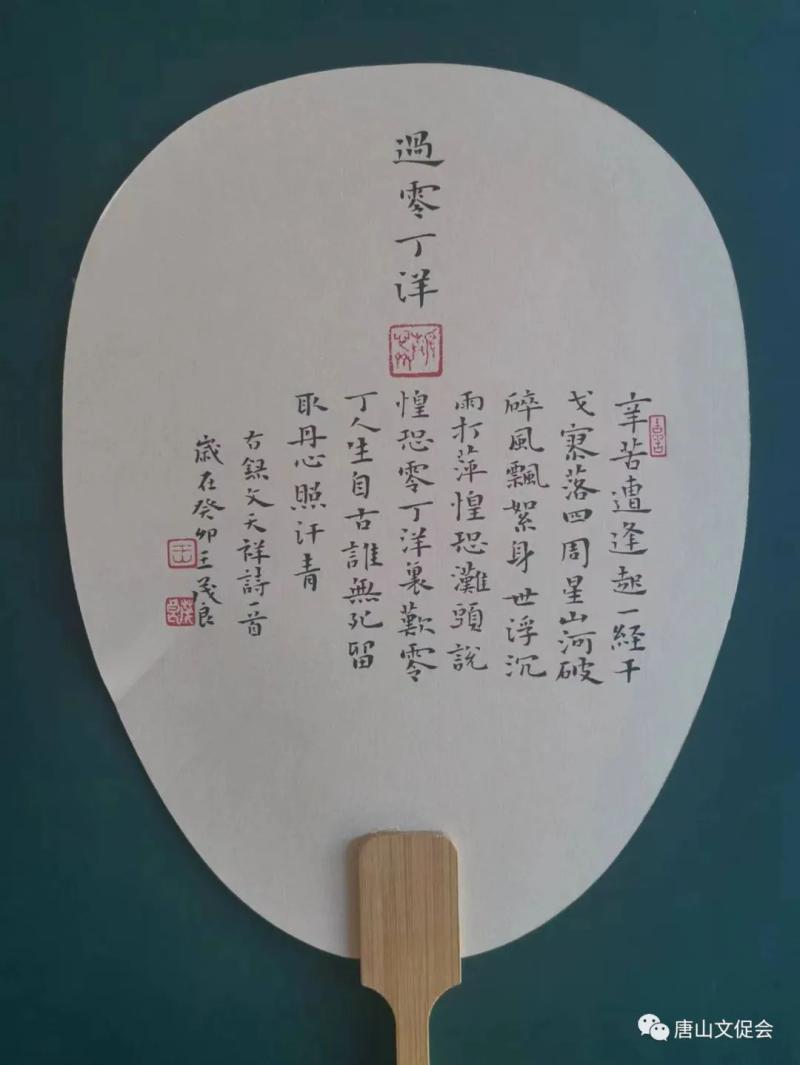 過零丁洋
辛苦遭逢起一經干
戈寥落四周星山河破
碎風飄絮身世浮沉
雨打萍惶恐灘頭說
惶恐零丁洋裏歎零
丁人生自古誰無死留
取丹心照汗青
右録文天祥詩一首
歲在癸卯王茂良
王
唐山文促会